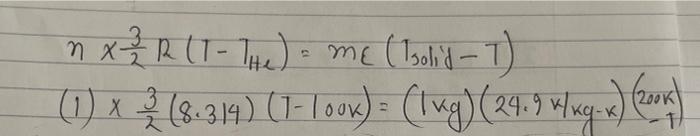 n × 3/2 R (T - T_He) = mc (Tsolid - T)
(1) × 3/2 (8.314) (T-100K) = (1kg) (24.9 K/kg-K) (200K - T)